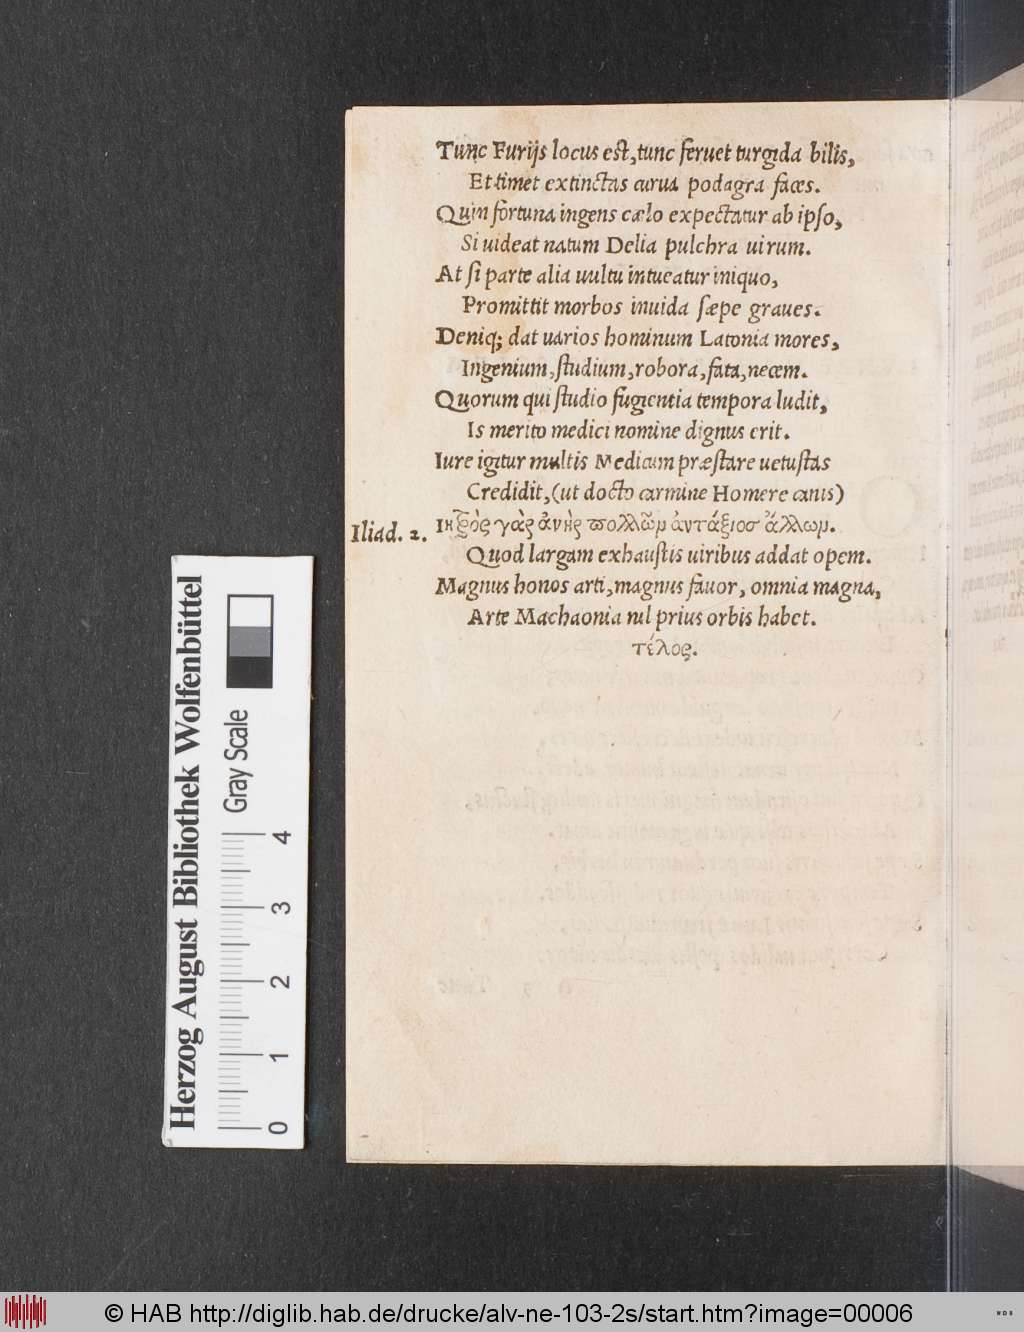 Tunc Furijs locus est, tunc feruet turgida bilis,
Et timet extinctas curua podagra faces.
Quin fortuna ingens cælo expectatur ab ipso,
Si uideat natum Delia pulchra uirum.
At si parte alia uultu intueatur iniquo,
Promittit morbos inuida sæpe graues.
Deniq; dat uarios hominum Latonia mores,
Ingenium, studium, robora, fata, necem.
Quorum qui studio fugientia tempora ludit,
Is merito medici nomine dignus erit.
Iure igitur multis Medicum præstare uetustas
Credidit, (ut docto carmine Homere canis)
Iliad. 2. Ιηξὸς γὰρ ἀνὴρ πολλῶμ ἀντάξιοσ ἄλλωμ.
Quod largam exhaustis uiribus addat opem.
Magnus honos arti, magnus fauor, omnia magna,
Arte Machaonia nil prius orbis habet.
τέλος.
Herzog August Bibliothek Wolfenbüttel
Gray Scale
0 1 2 3 4
© HAB http://diglib.hab.de/drucke/alv-ne-103-2s/start.htm?image=00006